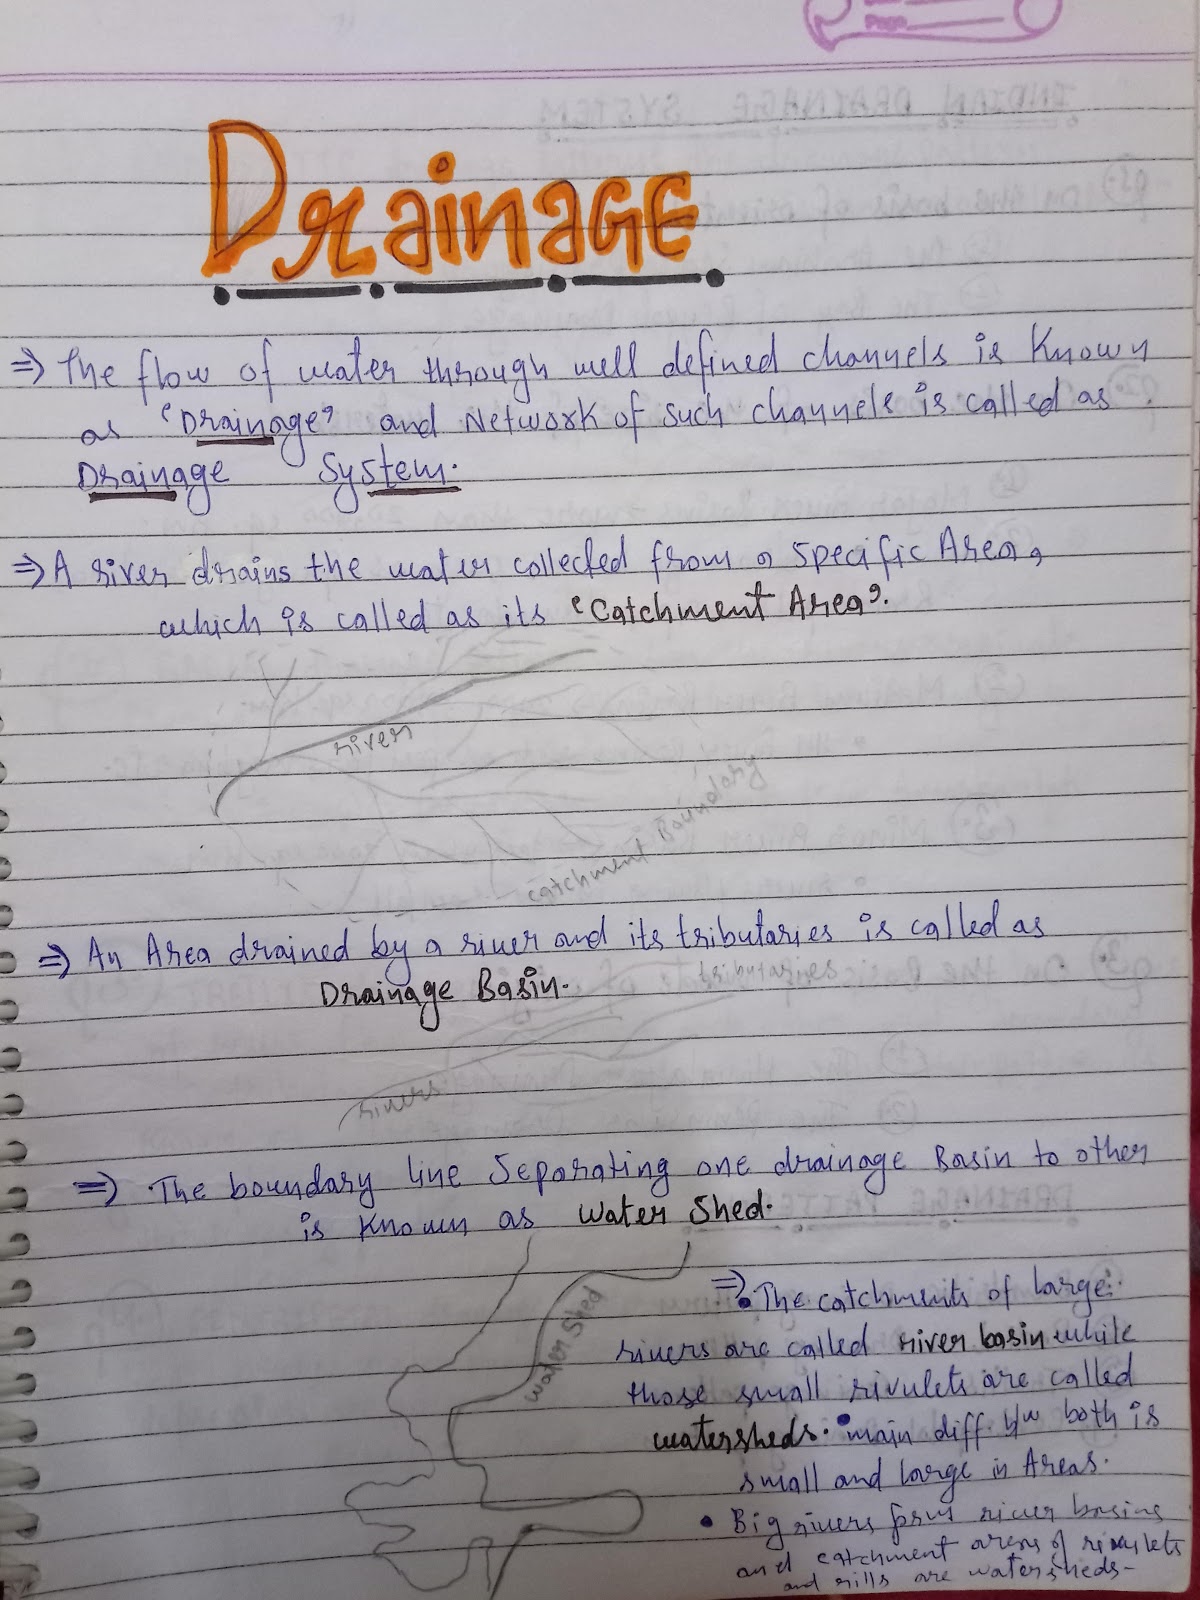 Page
Drainage
⇒ The flow of water through well defined channels is Known
as 'Drainage' and Network of such channels is called as
Drainage System.
⇒ A river drains the water collected from a Specific Area,
which is called as its 'Catchment Area'.
river
catchment Boundary
⇒ An Area drained by a river and its tributaries is called as
Drainage Basin.
tributaries
rivers
⇒ The boundary line Separating one drainage Basin to other
is Known as water Shed.
water Shed
⇒ • The catchments of large
rivers are called river basin while
those small rivulets are called
watersheds. • main diff. b/w both is
small and large in Areas.
• Big rivers form river basins
and catchment areas of rivulets
and rills are watersheds-